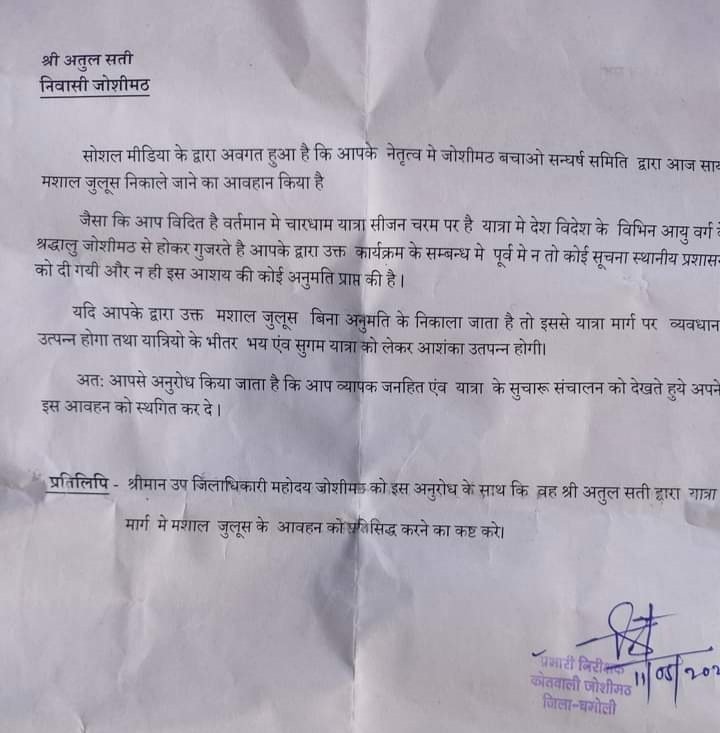 श्री अतुल सती
निवासी जोशीमठ
सोशल मीडिया के द्वारा अवगत हुआ है कि आपके नेतृत्व मे जोशीमठ बचाओ सन्घर्ष समिति द्वारा आज
मशाल जुलूस निकाले जाने का आवहान किया है
जैसा कि आप विदित है वर्तमान मे चारधाम यात्रा सीजन चरम पर है यात्रा मे देश विदेश के विभिन आयु वर्ग
श्रद्धालु जोशीमठ से होकर गुजरते है आपके द्वारा उक्त कार्यक्रम के सम्बन्ध मे पूर्व मे न तो कोई सूचना स्थानीय प्रशासन
को दी गयी और न ही इस आशय की कोई अनुमति प्राप्त की है।
यदि आपके द्वारा उक्त मशाल जुलूस बिना अनुमति के निकाला जाता है तो इससे यात्रा मार्ग पर व्यवधान
उत्पन्न होगा तथा यात्रियो के भीतर भय एंव सुगम यात्रा को लेकर आशंका उतपन्न होगी।
अत: आपसे अनुरोध किया जाता है कि आप व्यापक जनहित एंव यात्रा के सुचारू संचालन को देखते हुये अपने
इस आवहन को स्थगित कर दे।
प्रतिलिपि - श्रीमान उप जिलाधिकारी महोदय जोशीमठ को इस अनुरोध के साथ कि वह श्री अतुल सती द्वारा यात्रा
मार्ग मे मशाल जुलूस के आवहन को प्रतिसिद्ध करने का कष्ट करे।
प्रभारी निरीक्षक
कोतवाली जोशीमठ
जिला-चमोली
11/05/202